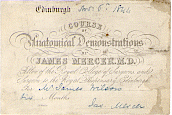 Edinburgh Nov 6th 1846
COURSE
OF
Anatomical Demonstrations
BY
JAMES MERCER, M.D.
Fellow of the Royal College of Surgeons and
Lecturer
For Mr James Wilson
Six Months
Jas Mercer